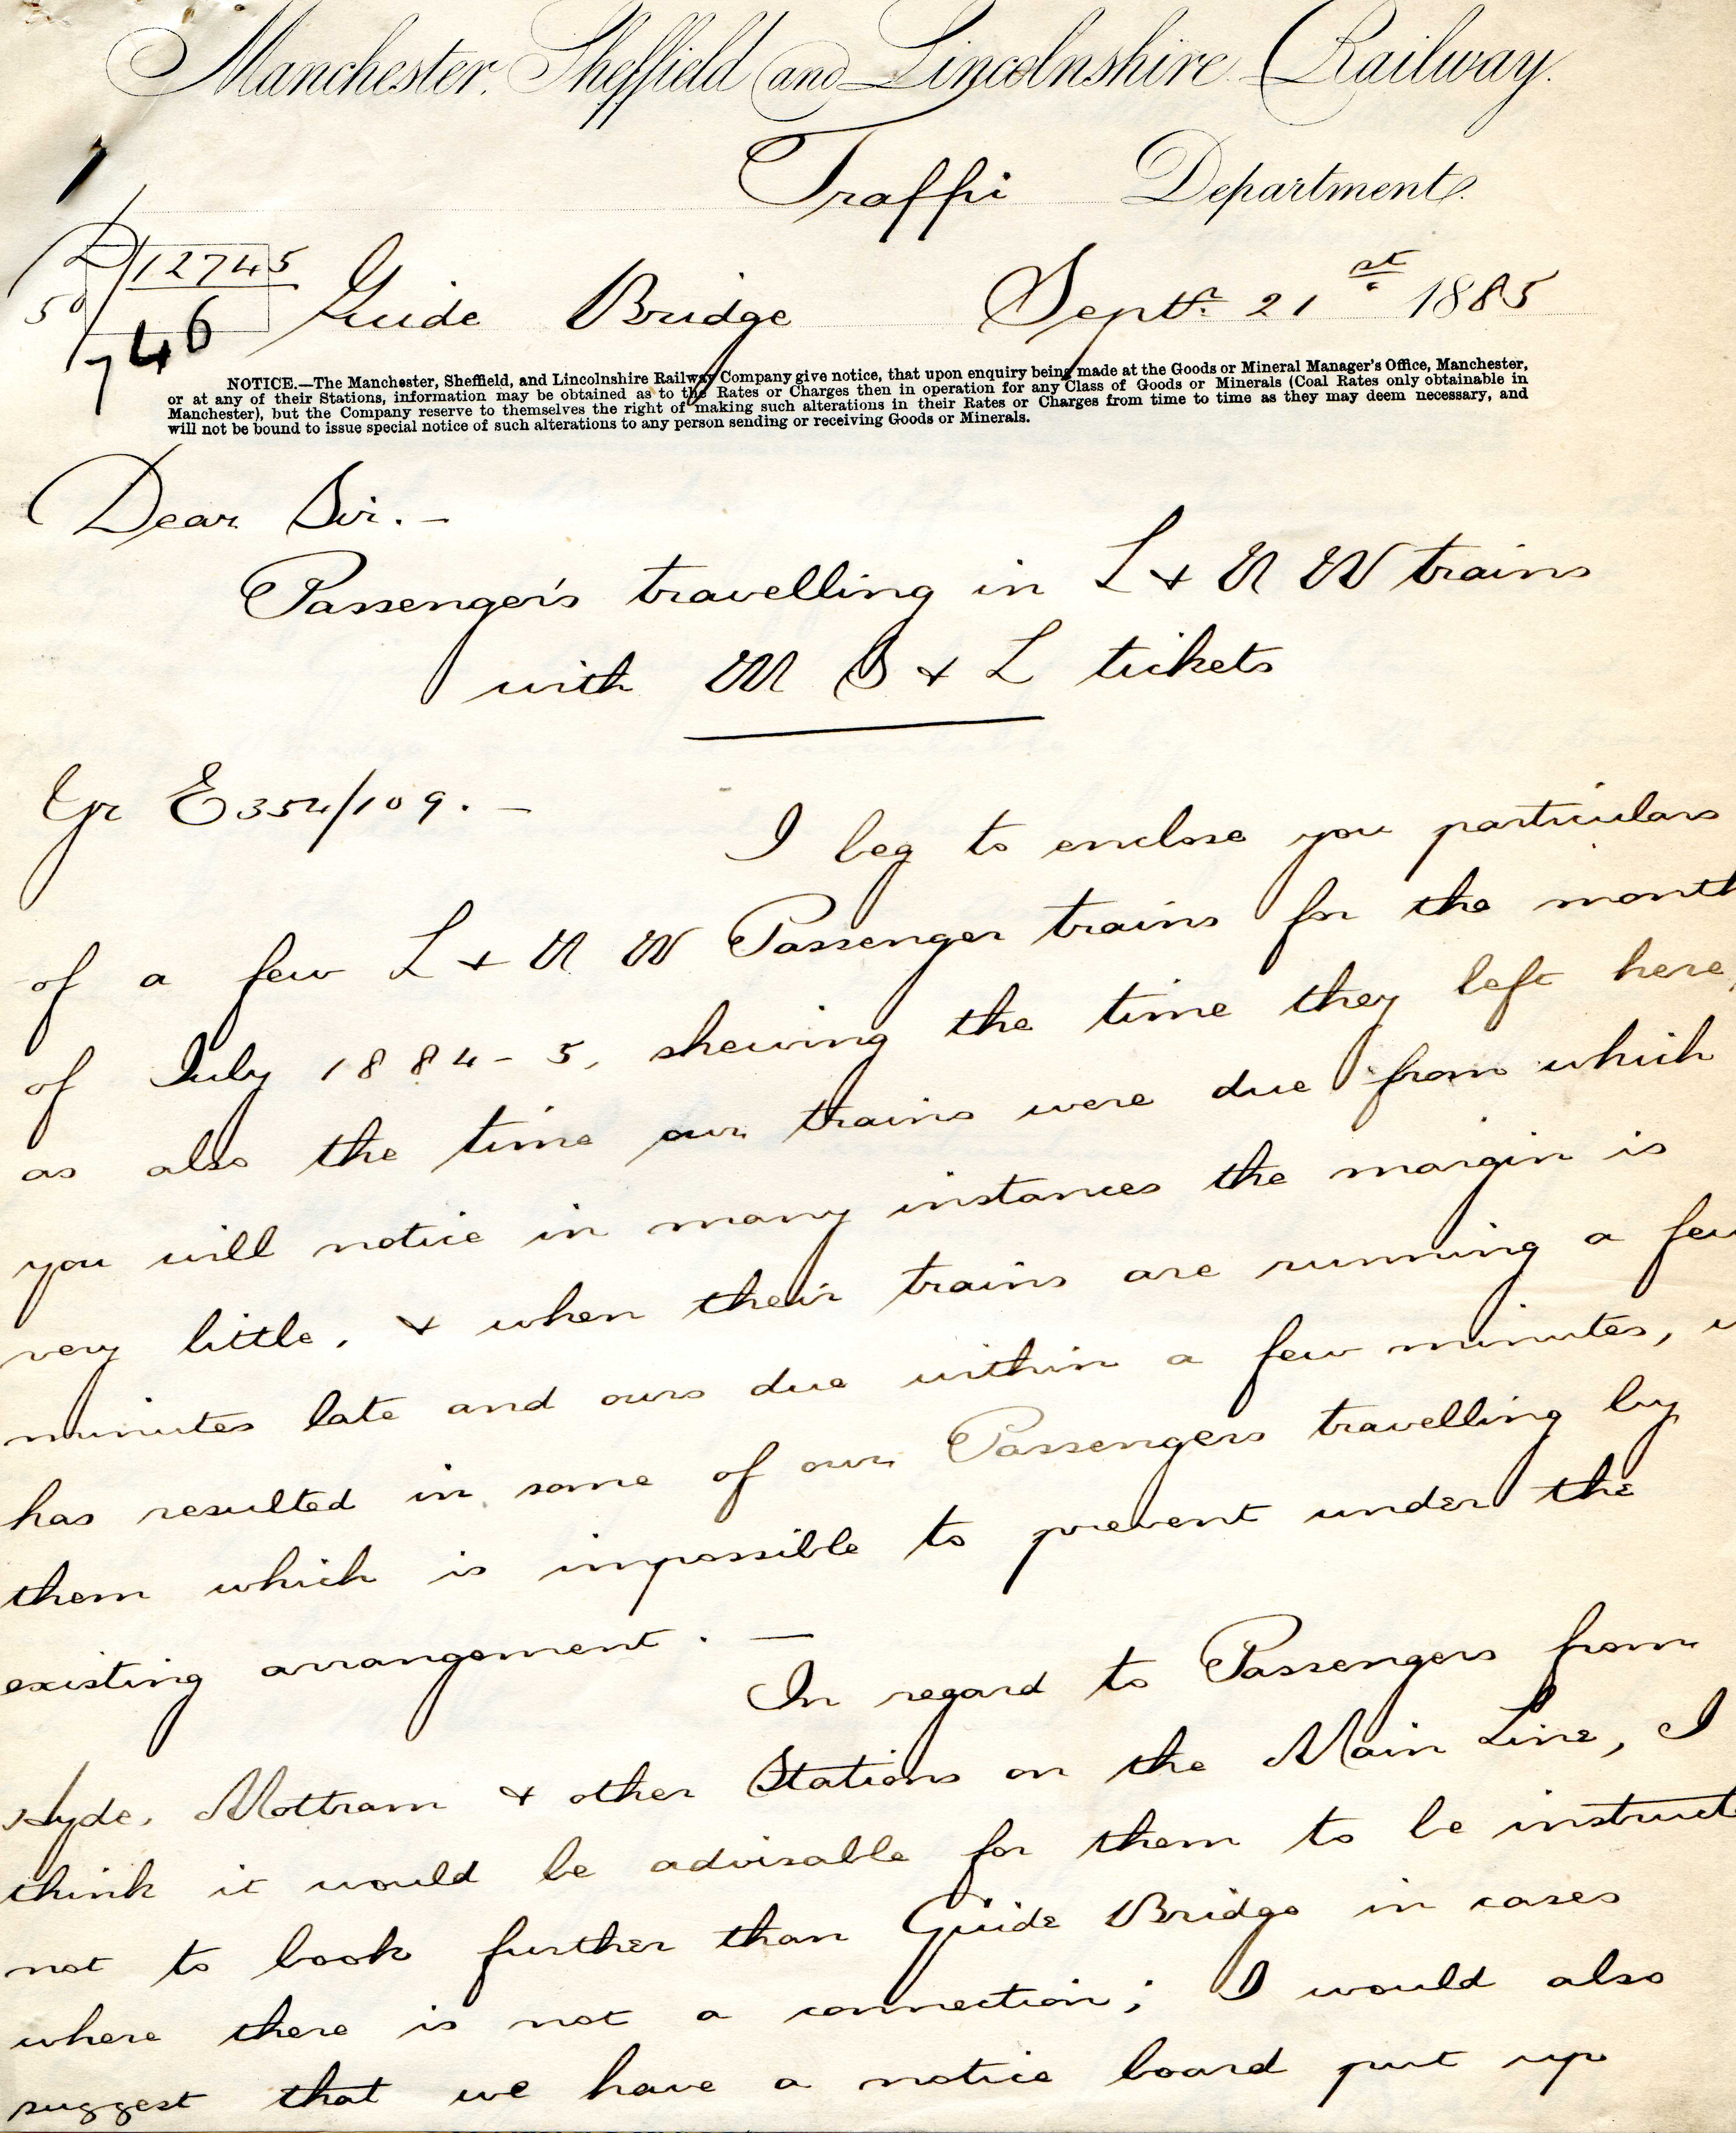 Manchester, Sheffield and Lincolnshire Railway.
Traffi Department.
12745
746
Guide Bridge Septr. 21st 1885
NOTICE.—The Manchester, Sheffield, and Lincolnshire Railway Company give notice, that upon enquiry being made at the Goods or Mineral Manager's Office, Manchester,
or at any of their Stations, information may be obtained as to the Rates or Charges then in operation for any Class of Goods or Minerals (Coal Rates only obtainable in
Manchester), but the Company reserve to themselves the right of making such alterations in their Rates or Charges from time to time as they may deem necessary, and
will not be bound to issue special notice of such alterations to any person sending or receiving Goods or Minerals.
Dear Sir. —
Passenger's travelling in L & N W trains
with M S & L tickets
Yr E354/109. —
I beg to enclose you particulars
of a few L & N W Passenger trains for the month
of July 1884-5, shewing the time they left here,
as also the time our trains were due from which
you will notice in many instances the margin is
very little, & when their trains are running a few
minutes late and ours due within a few minutes,
has resulted in some of our Passengers travelling by
them which is impossible to prevent under the
existing arrangement. —
In regard to Passengers from
Hyde, Mottram & other Stations on the Main Line, I
think it would be advisable for them to be instruct
not to book further than Guide Bridge in cases
where there is not a connection; I would also
suggest that we have a notice board put up